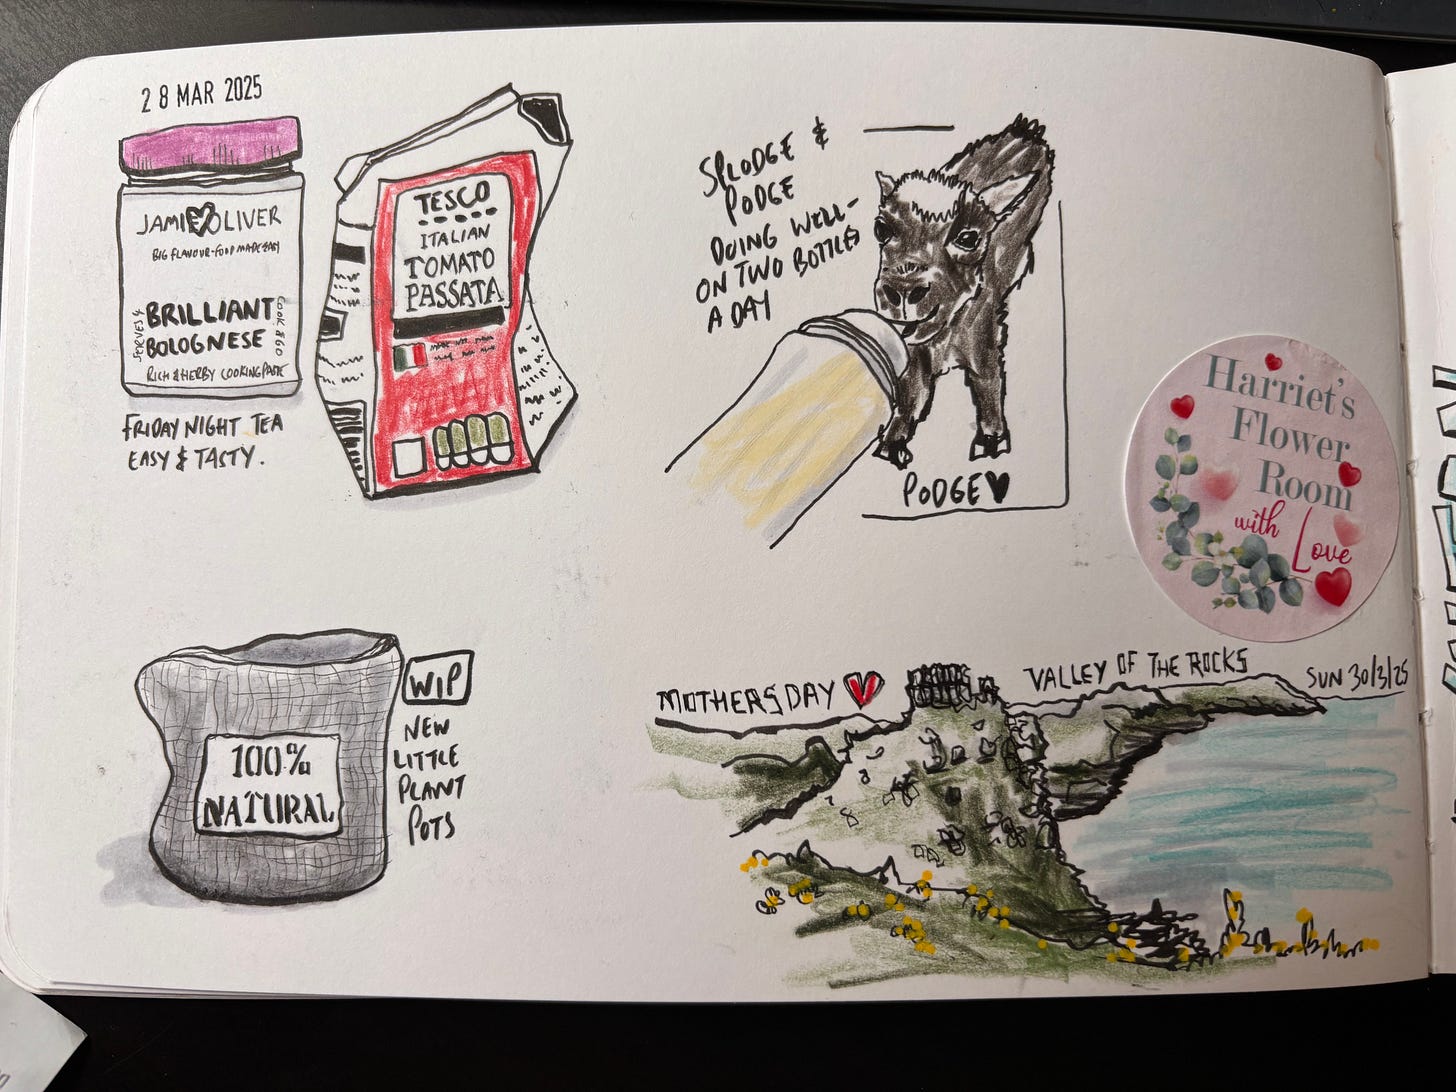 28 MAR 2025
JAMIE OLIVER
BIG FLAVOUR-FOOD MADE EASY
SERVES 4
BRILLIANT
BOLOGNESE
COOK & GO
RICH & HERBY COOKING PASTE
FRIDAY NIGHT TEA
EASY & TASTY.
TESCO
ITALIAN
TOMATO
PASSATA
SPLODGE &
PODGE
DOING WELL-
ON TWO BOTTLES
A DAY
PODGE
Harriet's
Flower
Room
with Love
100%
NATURAL
WIP
NEW
LITTLE
PLANT
POTS
MOTHERS DAY
VALLEY OF THE ROCKS
SUN 30/3/25